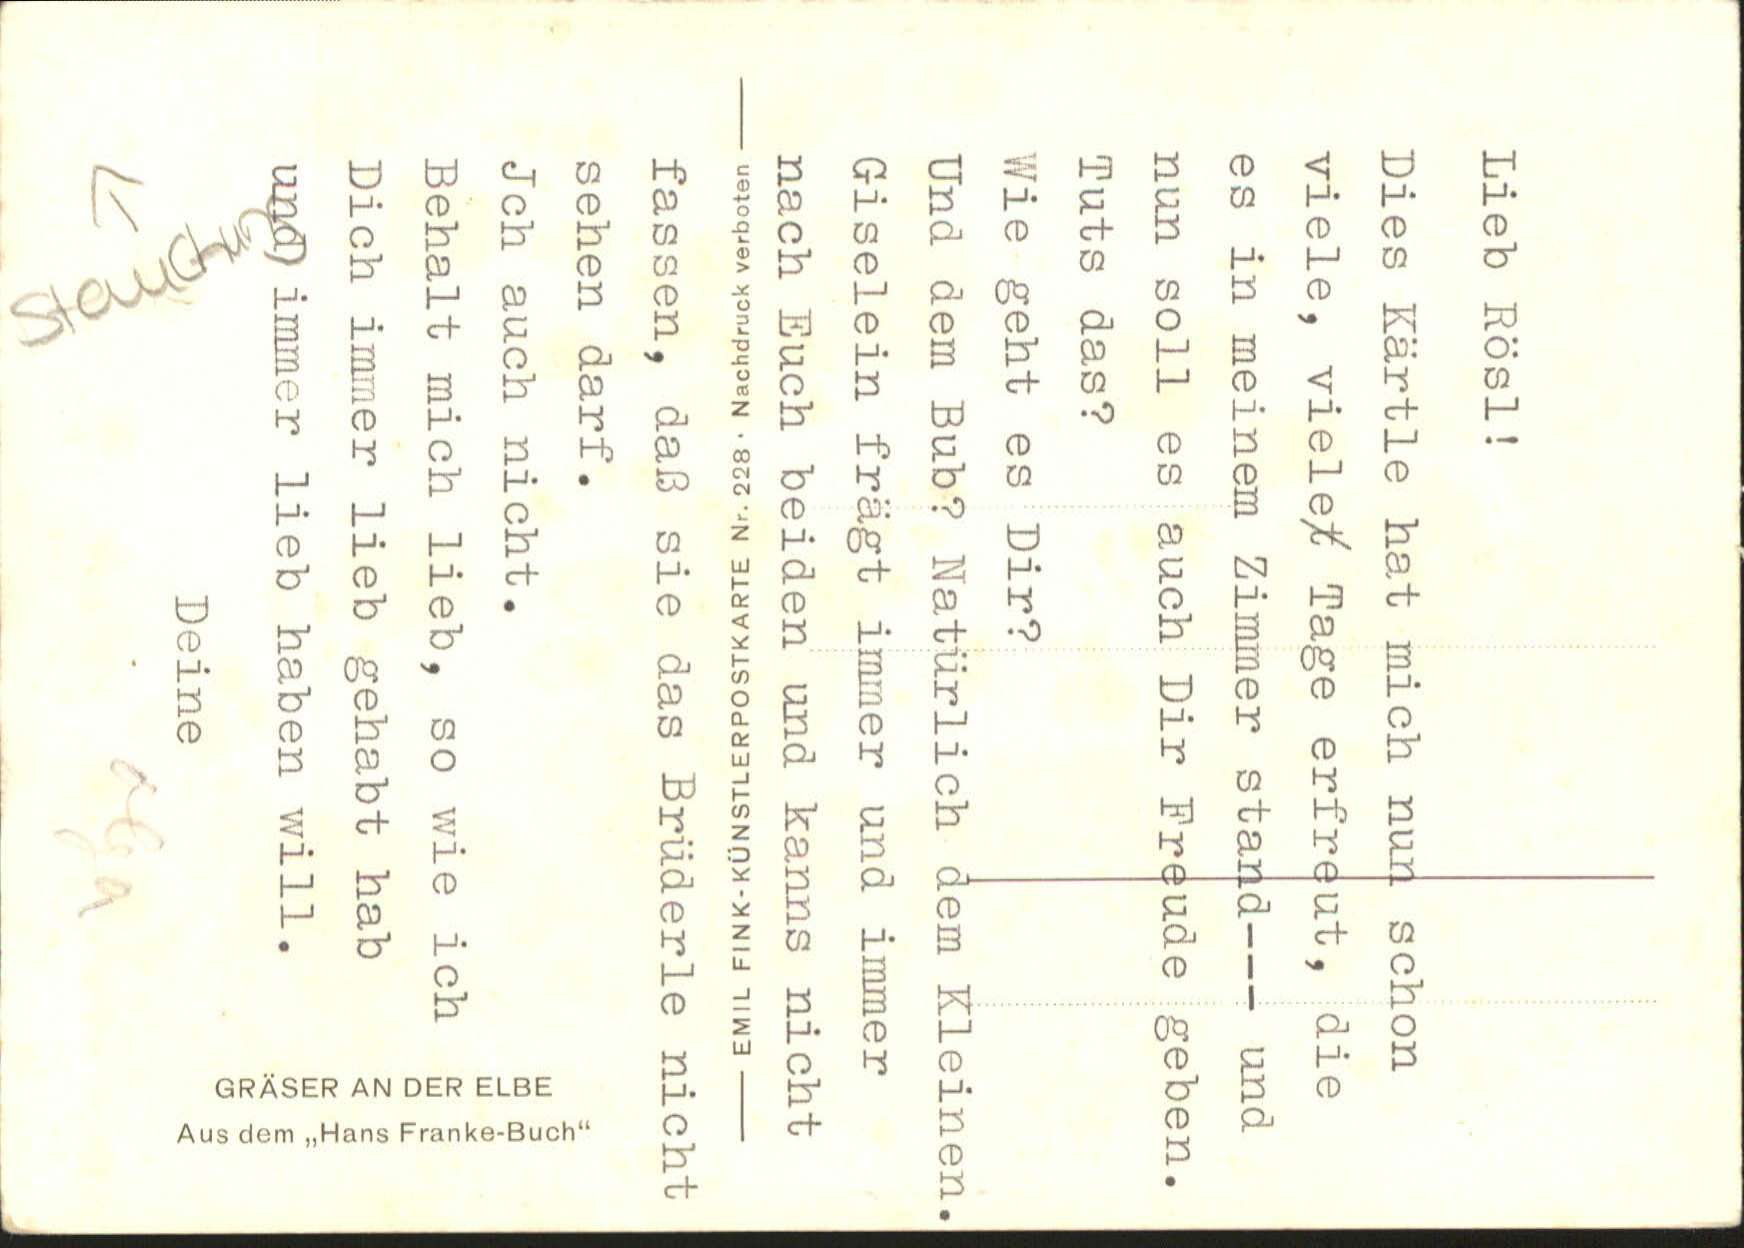 Lieb Rösl!
Dies Kärtle hat mich nun schon
viele, viele Tage erfreut, die
es in meinem Zimmer stand--- und
nun soll es auch Dir Freude geben.
Tuts das?
Wie geht es Dir?
Und dem Bub? Natürlich dem Kleinen.
Giselein frägt immer und immer
nach Euch beiden und kanns nicht
fassen, daß sie das Brüderle nicht
sehen darf.
Jch auch nicht.
Behalt mich lieb, so wie ich
Dich immer lieb gehabt hab
und immer lieb haben will.
Deine
EMIL FINK-KÜNSTLERPOSTKARTE Nr. 228 · Nachdruck verboten
GRÄSER AN DER ELBE
Aus dem „Hans Franke-Buch“
Stauchung